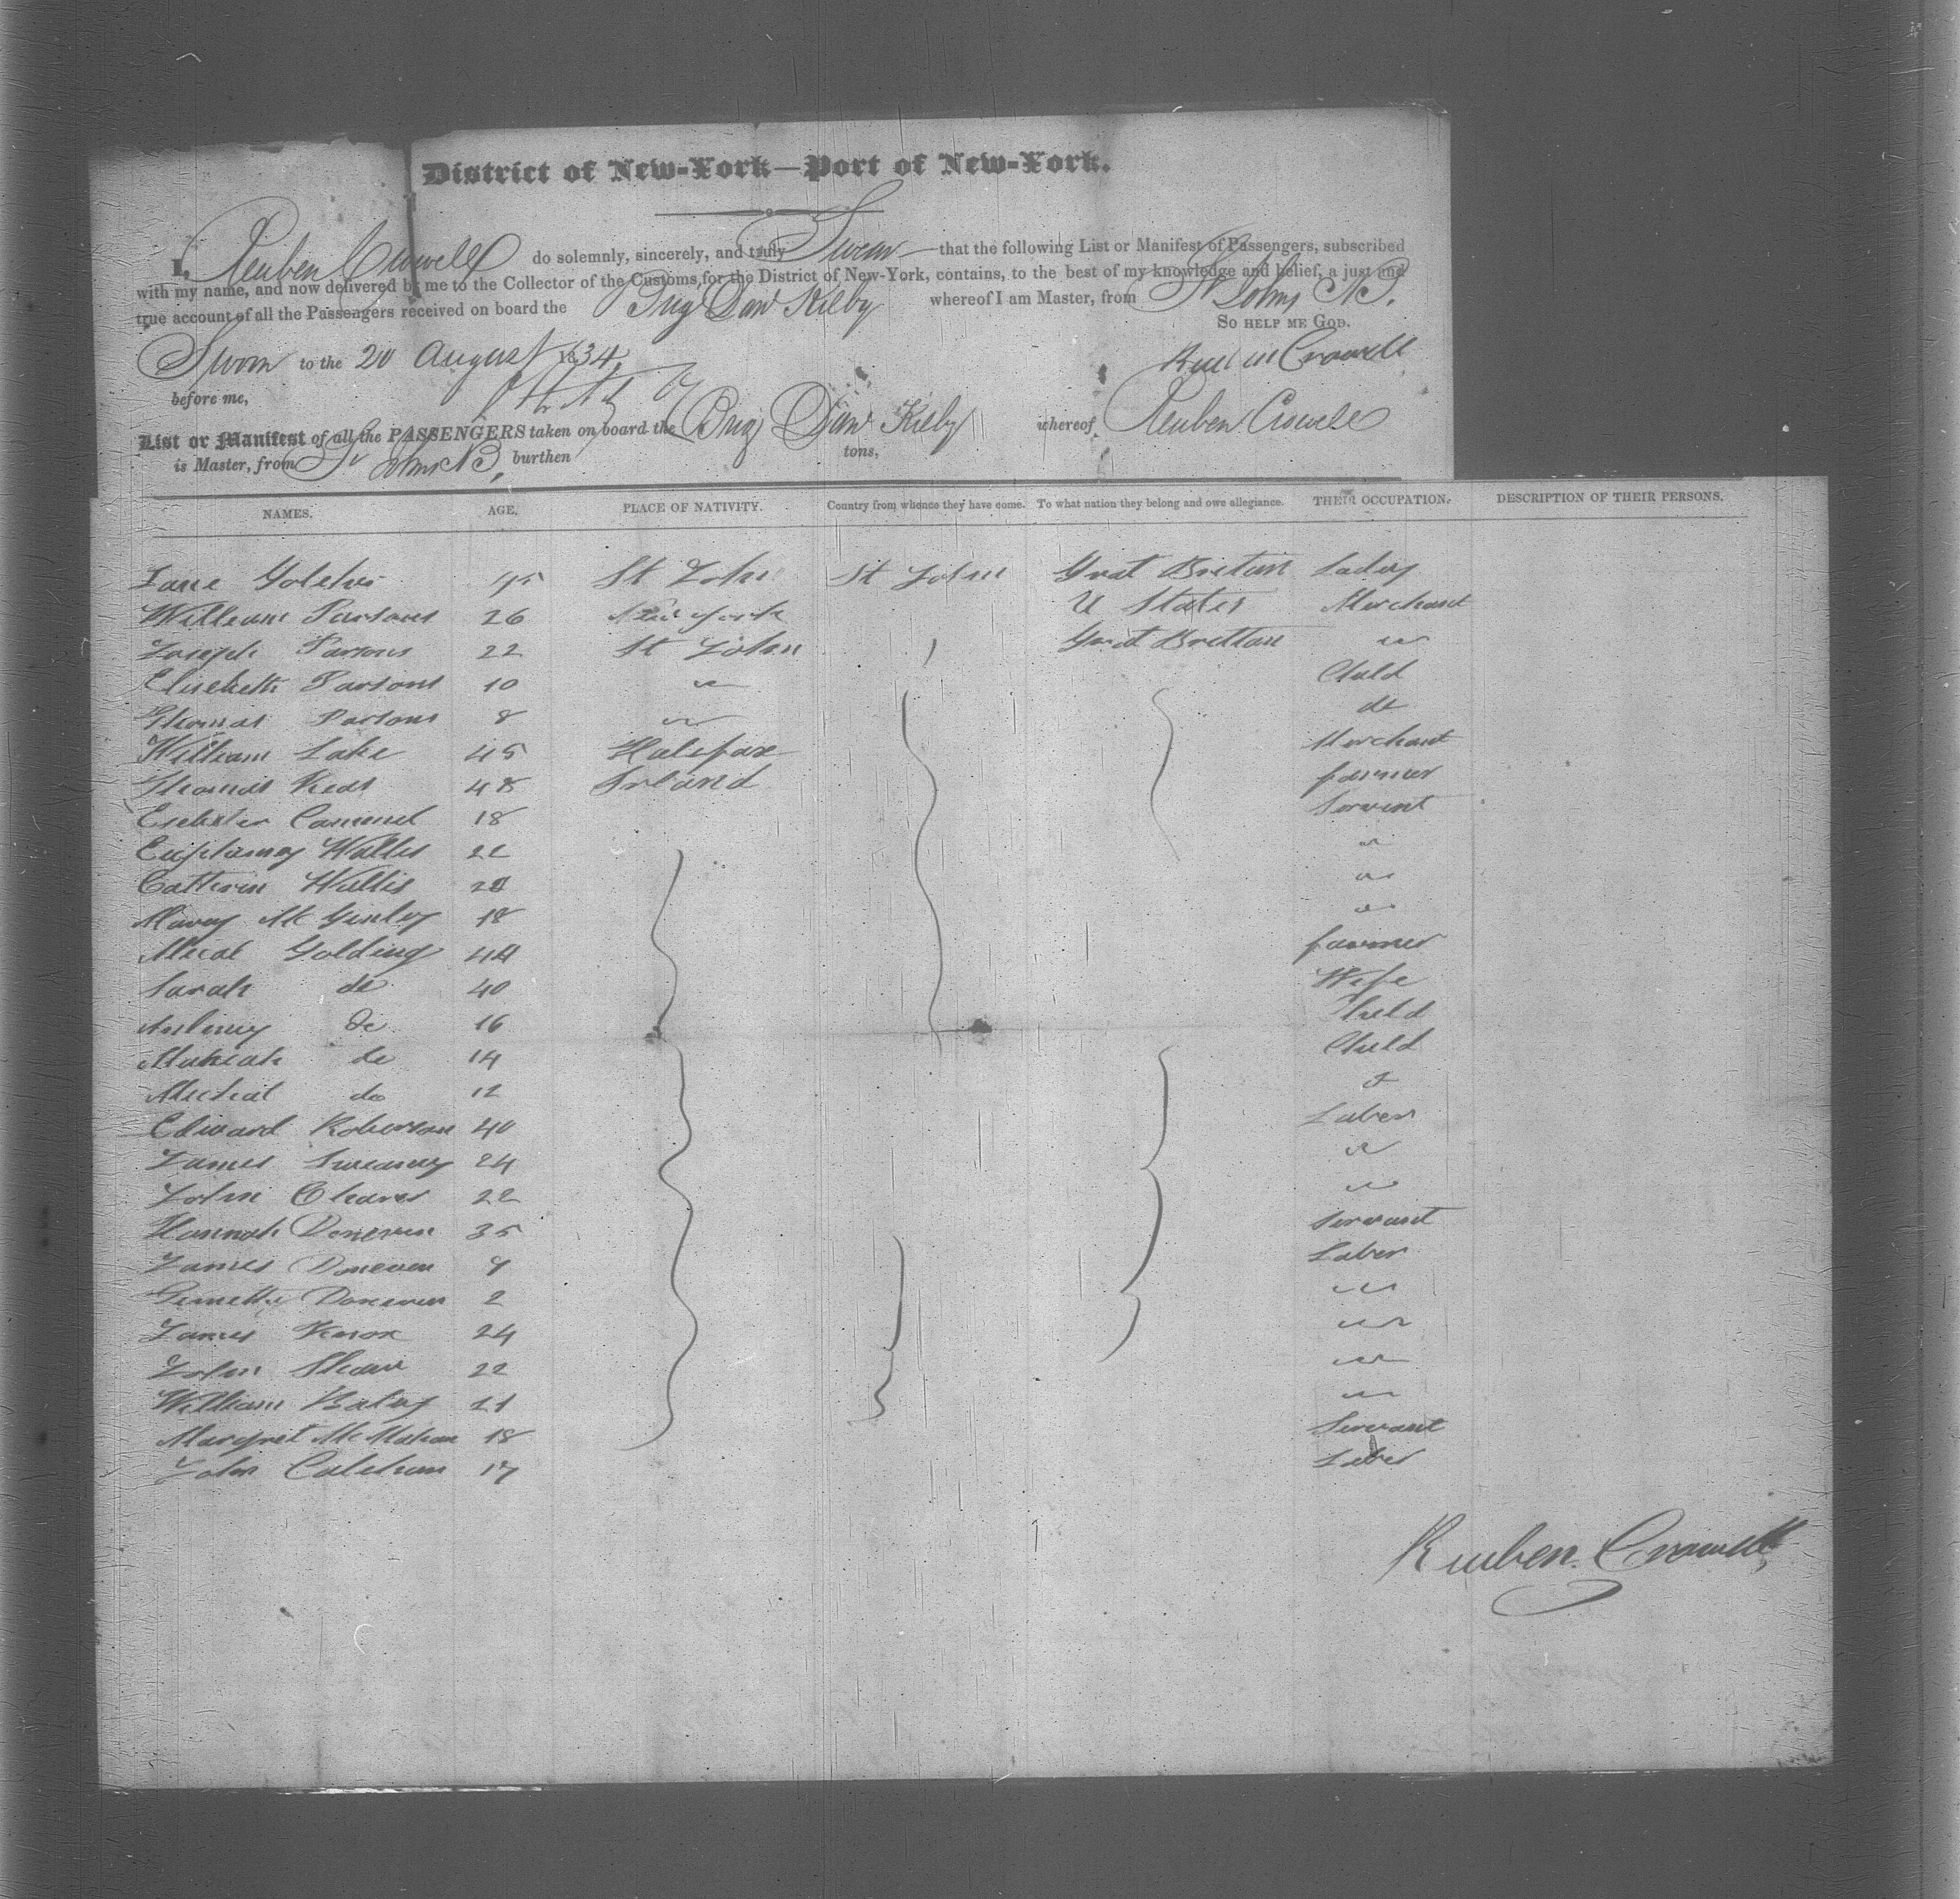 District of New-York—Port of New-York.
I, Reuben Crowell do solemnly, sincerely, and truly Swear that the following List or Manifest of Passengers, subscribed
with my name, and now delivered by me to the Collector of the Customs for the District of New-York, contains, to the best of my knowledge and belief, a just and
true account of all the Passengers received on board the Brig Dan Kilby whereof I am Master, from St Johns NB.
So help me God.
Sworn to the 20 August 1834, Reuben Crowell
before me,
List or Manifest of all the PASSENGERS taken on board the Brig Dan Kilby whereof Reuben Crowell
is Master, from St Johns NB, burthen tons,
NAMES. AGE. PLACE OF NATIVITY. Country from whence they have come. To what nation they belong and owe allegiance. THEIR OCCUPATION. DESCRIPTION OF THEIR PERSONS.
Jane St John St John Great Britian Lady
William Parsons 26 New York U States Merchant
Joseph Parsons 22 St John Great Brittan "
Elisebeth Parsons 10 " Child
Thomas Parsons 8 " do
William Lake 45 Halifax Merchant
Thomas 48 Irland farmer
18 Servent
Wallis 22 "
Cattrin Wallis "
Mary Mc Ginley 18 "
Golding 44 farmer
Sarah do 40 Wife
do 16 Child
do 14 Child
Micheal do 12
Edward Roberson 40 Laber
James Sweaney 24 "
John Cleares 22 "
Hannah Doneven 35 Servant
James Doneven 9 Laber
Doneven 2 "
James Knox 24 "
John Shaw 22 "
William Baley 21 "
Margret McMahan 18 Servant
John 17 Laber
Reuben Crowell